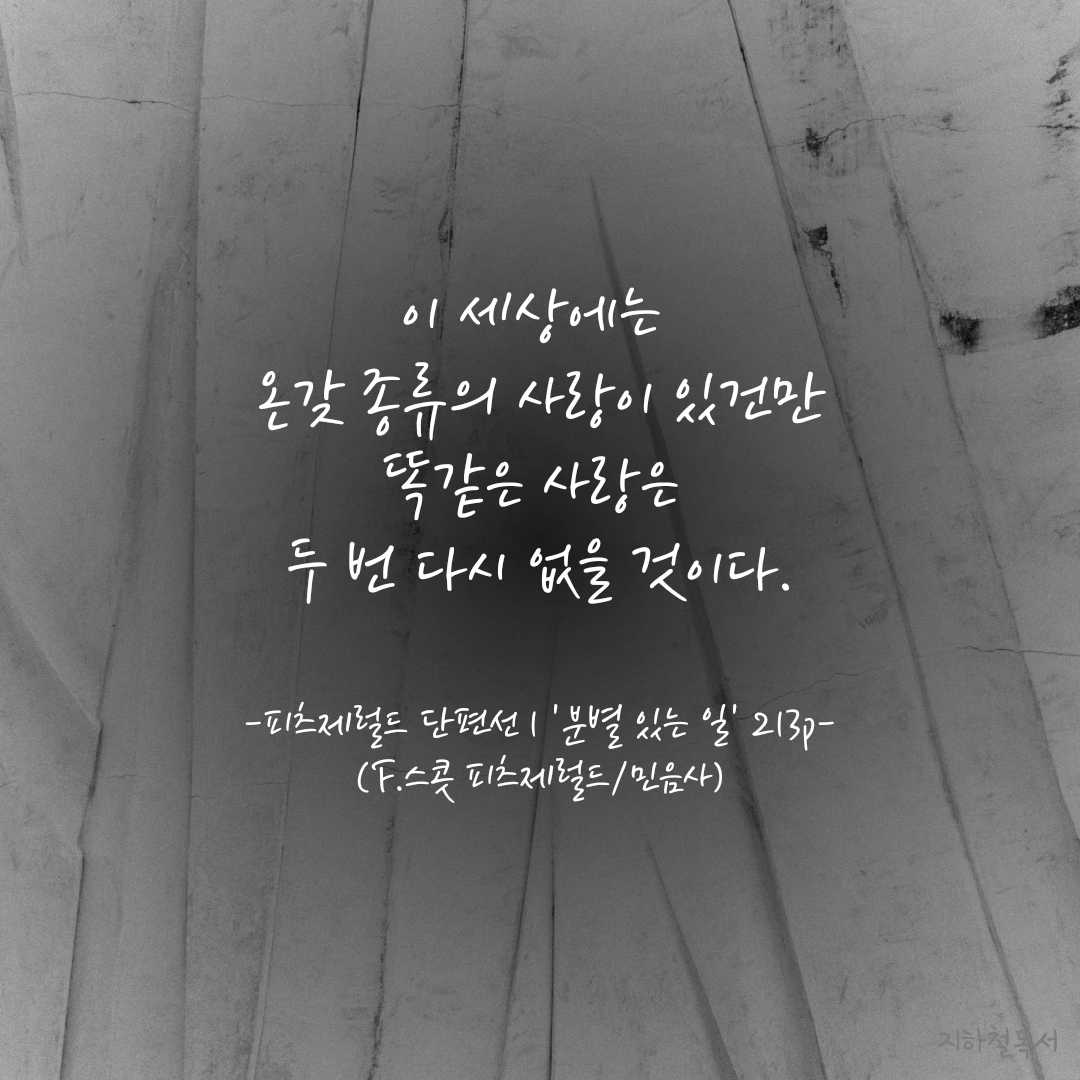 이 세상에는
온갖 종류의 사랑이 있건만
똑같은 사랑은
두 번 다시 없을 것이다.
-피츠제럴드 단편선 1 '분별 있는 일' 213p-
(F.스콧 피츠제럴드/민음사)
지하철독서